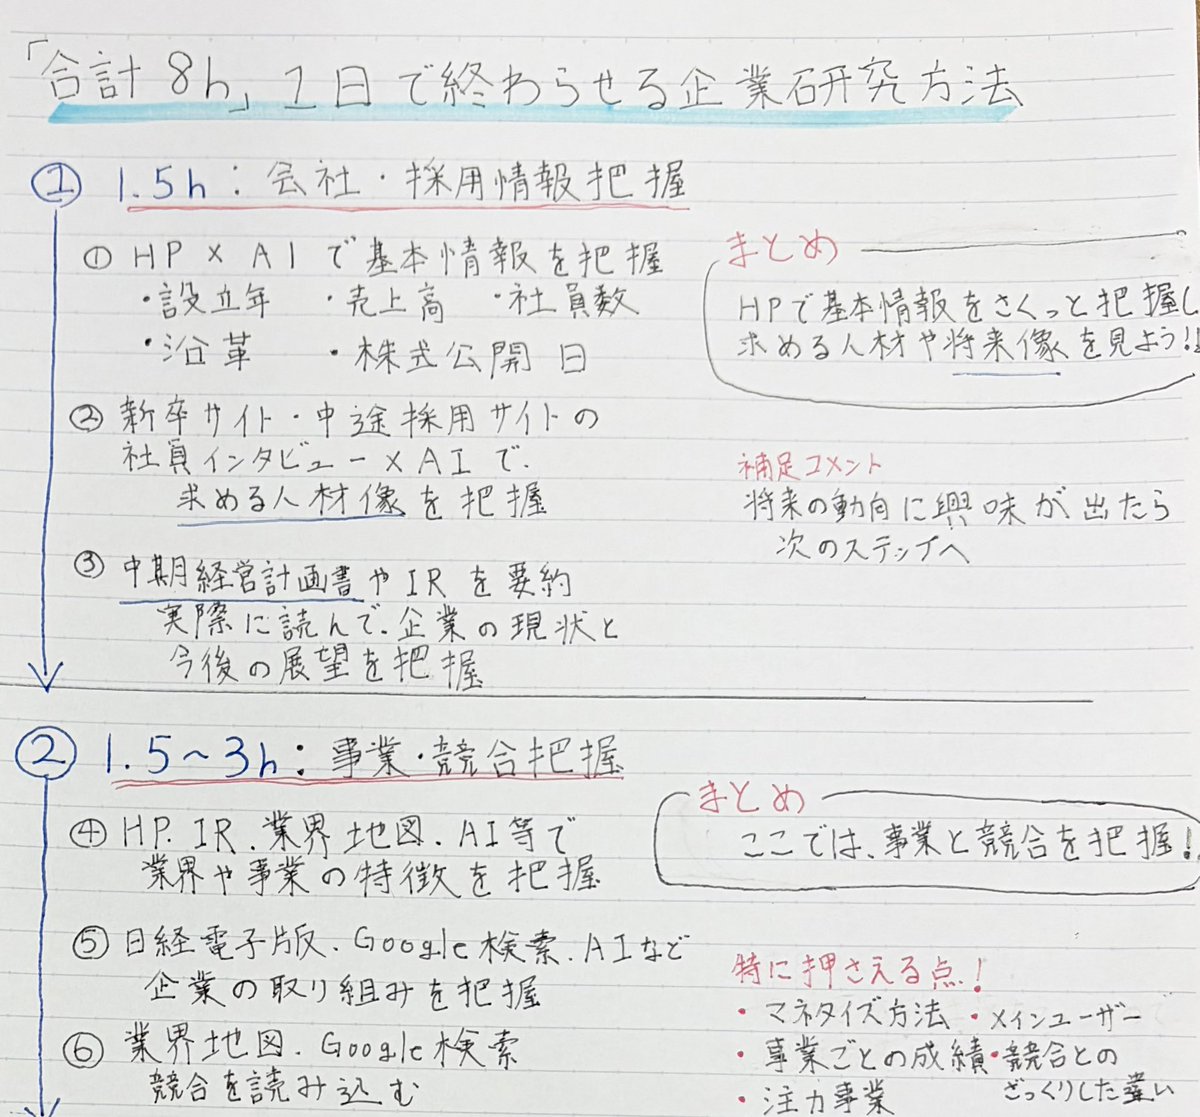 「合計 8h」1日で終わらせる企業研究方法
① 1.5h：会社・採用情報把握
① HP × AIで基本情報を把握
・設立年 ・売上高 ・社員数
・沿革 ・株式公開日
② 新卒サイト・中途採用サイトの
社員インタビュー×AIで、
求める人材像を把握
③ 中期経営計画書やIRを要約
実際に読んで、企業の現状と
今後の展望を把握
まとめ
HPで基本情報をさくっと把握し
求める人材や将来像を見よう!!
補足コメント
将来の動向に興味が出たら
次のステップへ
② 1.5~3h：事業・競合把握
④ HP、IR、業界地図、AI等で
業界や事業の特徴を把握
⑤ 日経電子版、Google検索、AIなど
企業の取り組みを把握
⑥ 業界地図、Google検索
競合を読み込む
まとめ
ここでは、事業と競合を把握!
特に押さえる点!
・マネタイズ方法 ・メインユーザー
・事業ごとの成績 ・競合との
ざっくりした違い
・注力事業